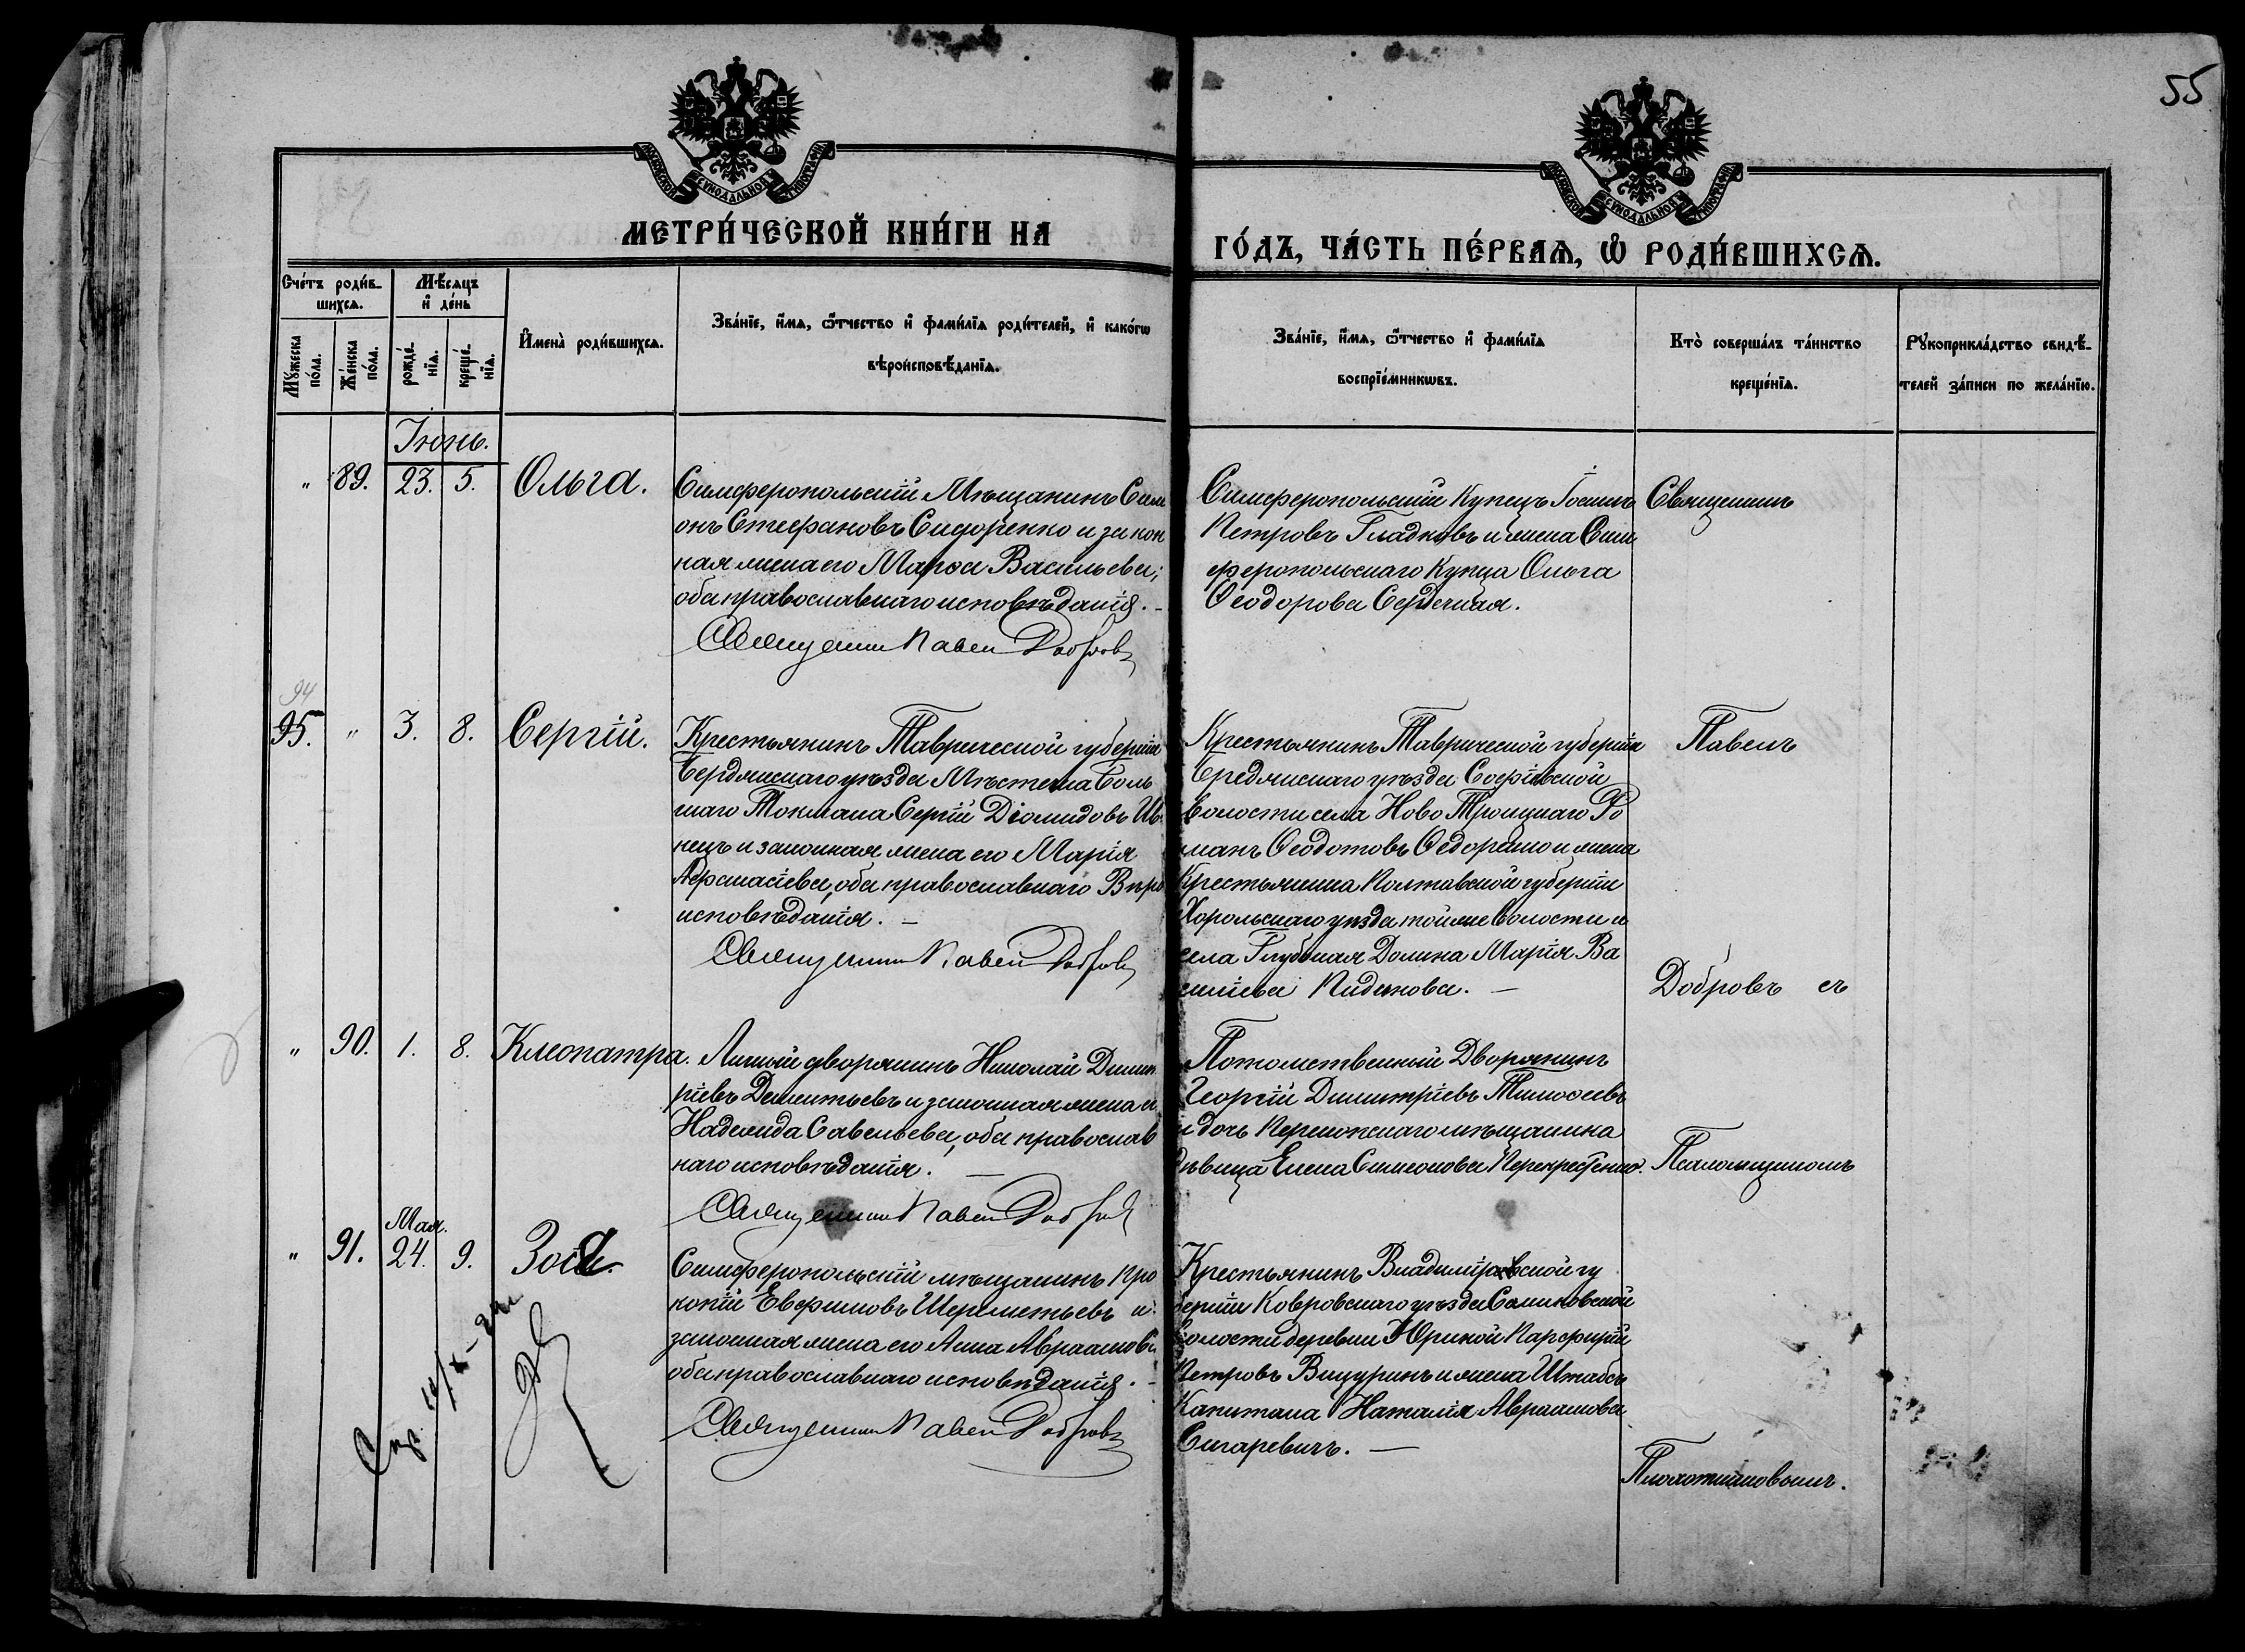 55
МОСКОВСКОЙ СѴНОДАЛЬНОЙ ТИПОГРАФІИ
МОСКОВСКОЙ СѴНОДАЛЬНОЙ ТИПОГРАФІИ
МЕТРИ́ЧЕСКОЙ КНИ́ГИ НА
ГО́ДЪ, ЧА́СТЬ ПЕ́РВАѦ, Ѡ҆ РОДИ́ВШИХСѦ.
Счё́тъ роди́в-
шихсѧ.
Мꙋ́жеска по́ла.
Же́нска по́ла.
Мѣ́сѧцъ
и҆ де́нь
рожде́-
нїѧ.
креще́-
нїѧ.
И҆мена̀ роди́вшихсѧ.
Зва́нїе, и҆́мѧ, ѻ҆́тчество и҆ фами́лїѧ роди́телей, и҆ како́гѡ
вѣроисповѣ́данїѧ.
Зва́нїе, и҆́мѧ, ѻ҆́тчество и҆ фами́лїѧ
воспрїе́мникѡвъ.
Кто̀ соверша́лъ та́инство
креще́нїѧ.
Рꙋкоприкла́дство свидѣ́-
телей за́писи по жела́нїю.
Іюнь.
" 89. 23. 5. Ольга.
Симферопольскій Мѣщанинъ Сим
онъ Стефановъ Сидоренко и закон
ная жена его Марѳа Васильева;
оба православнаго исповѣданія. -
Священникъ Павелъ Добровъ
Симферопольскій Купецъ Іосифъ
Петровъ Гладковъ и жена Сим
феропольскаго Купца Ольга
Ѳеодорова Сердечная.
Священникъ
94
95. " 3. 8. Сергій.
Крестьянинъ Таврической губерніи
Бердянскаго уѣзда Мѣстечка Боль
шаго Токмака Сергій Діомидовъ Ив
нецъ и законная жена его Марія
Аѳанасіева, оба православнаго Вѣро
исповѣданія. -
Священникъ Павелъ Добровъ
Крестьянинъ Таврической губерніи
Бредянскаго уѣзда Софіевской
волости села Ново Троицкаго Ро
манъ Ѳеодотовъ Ѳедоренко и жена
Крестьянина Полтавской губерніи
Хорольскаго уѣзда тойже волости и
села Глубокая Долина Марія Ва
силіева
Павелъ
Добровъ съ
" 90. 1. 8. Клеопатра.
Личный дворянинъ Николай Димит
ріевъ Дементьевъ и законная жена ег
Надежда Савельева, оба православ
наго исповѣданія. -
Священникъ Павелъ Добровъ
Потомственный Дворянинъ
Георгій Димитріевъ Тимоѳеевъ
и дочь Перекопскаго мѣщанина
дѣвица Елена Симеонова Перекрестенко.
Псаломщикомъ
Мая.
" 91. 24. 9. Зоя.
Симферопольскій мѣщанинъ Про
копій Евфимовъ Шереметьевъ и
законная жена его Анна Авраамова
оба православнаго исповѣданія. -
Священникъ Павелъ Добровъ
Крестьянинъ Владимірской гу
берніи Ковровскаго уѣзда Санниковской
волости деревни Юриной Парфирій
Петровъ Вицуринъ и жена Штабсъ
Капитана Наталія Авраамова
Сигаревичъ. -
Плохотниковымъ.